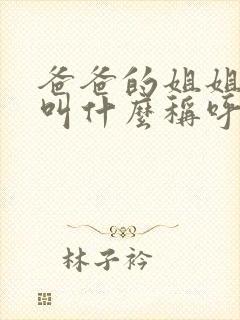 爸爸的姐姐
叫什麼稱呼
林子衿